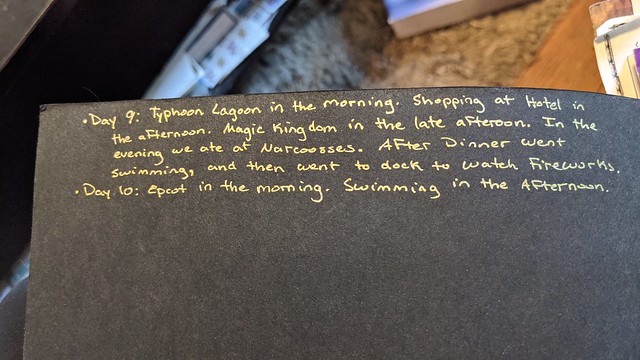 • Day 9: Typhoon Lagoon in the morning. Shopping at Hotel in
the afternoon. Magic Kingdom in the late afteroon. In the
evening we ate at Narcoosses. After Dinner went
swimming, and then went to dock to watch Fireworks.
• Day 10: Epcot in the morning. Swimming in the Afternoon.